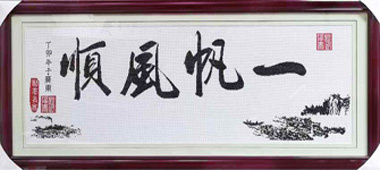 一帆風順
丁卯年于廣東